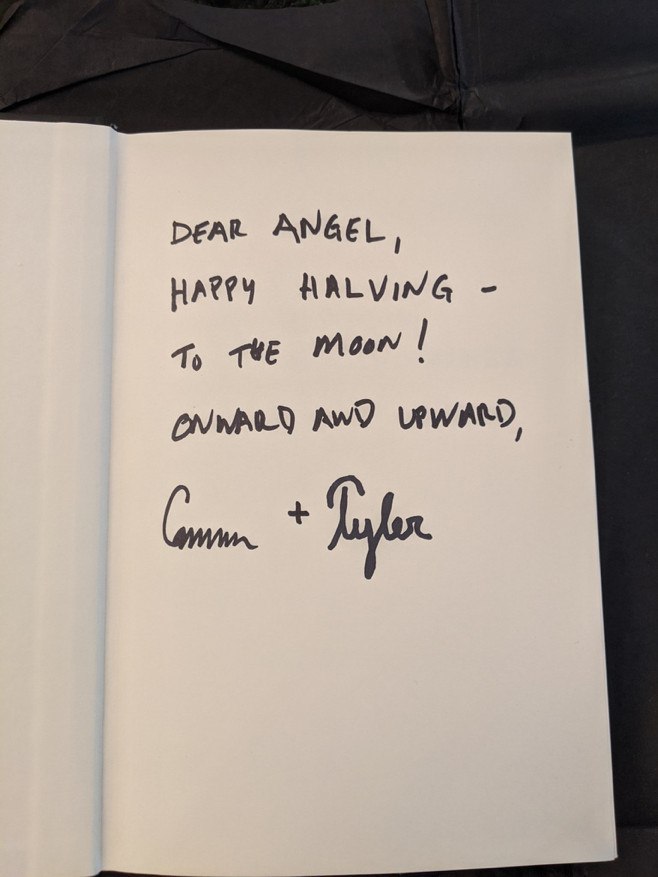 DEAR ANGEL,
HAPPY HALVING -
TO THE MOON!
ONWARD AND UPWARD,
+ Tyler